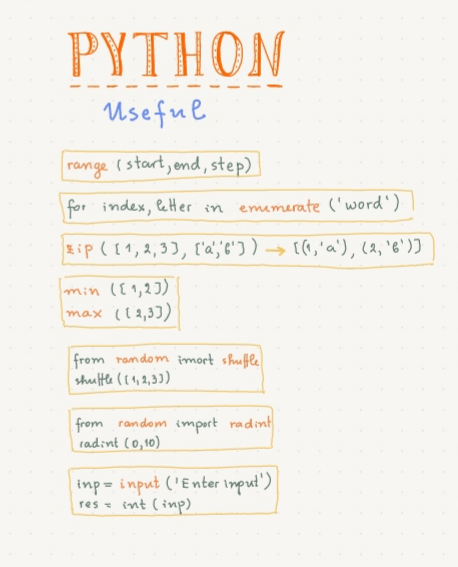 PYTHON
Useful
range (start, end, step)
for index, letter in enumerate ('word')
zip ([1,2,3], ['a','b']) → [(1,'a'), (2,'b')]
min ([1,2])
max ([2,3])
from random imort shuffle
shuffle ([1,2,3])
from random import radint
radint (0,10)
inp = input ('Enter input')
res = int (inp)